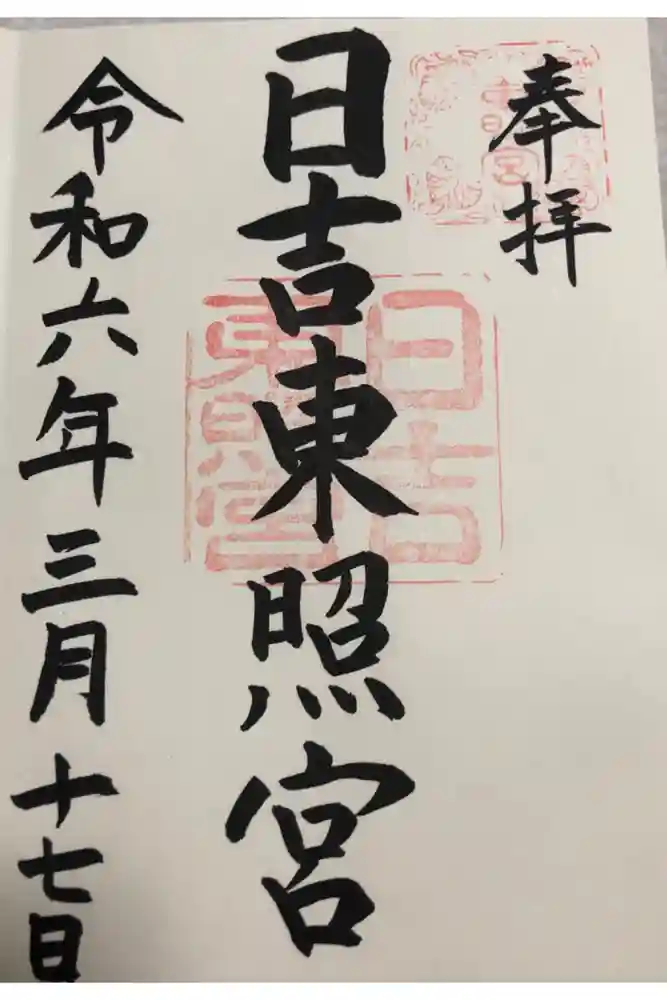 奉拝
日吉東照宮
日吉
東照宮
令和六年三月十七日